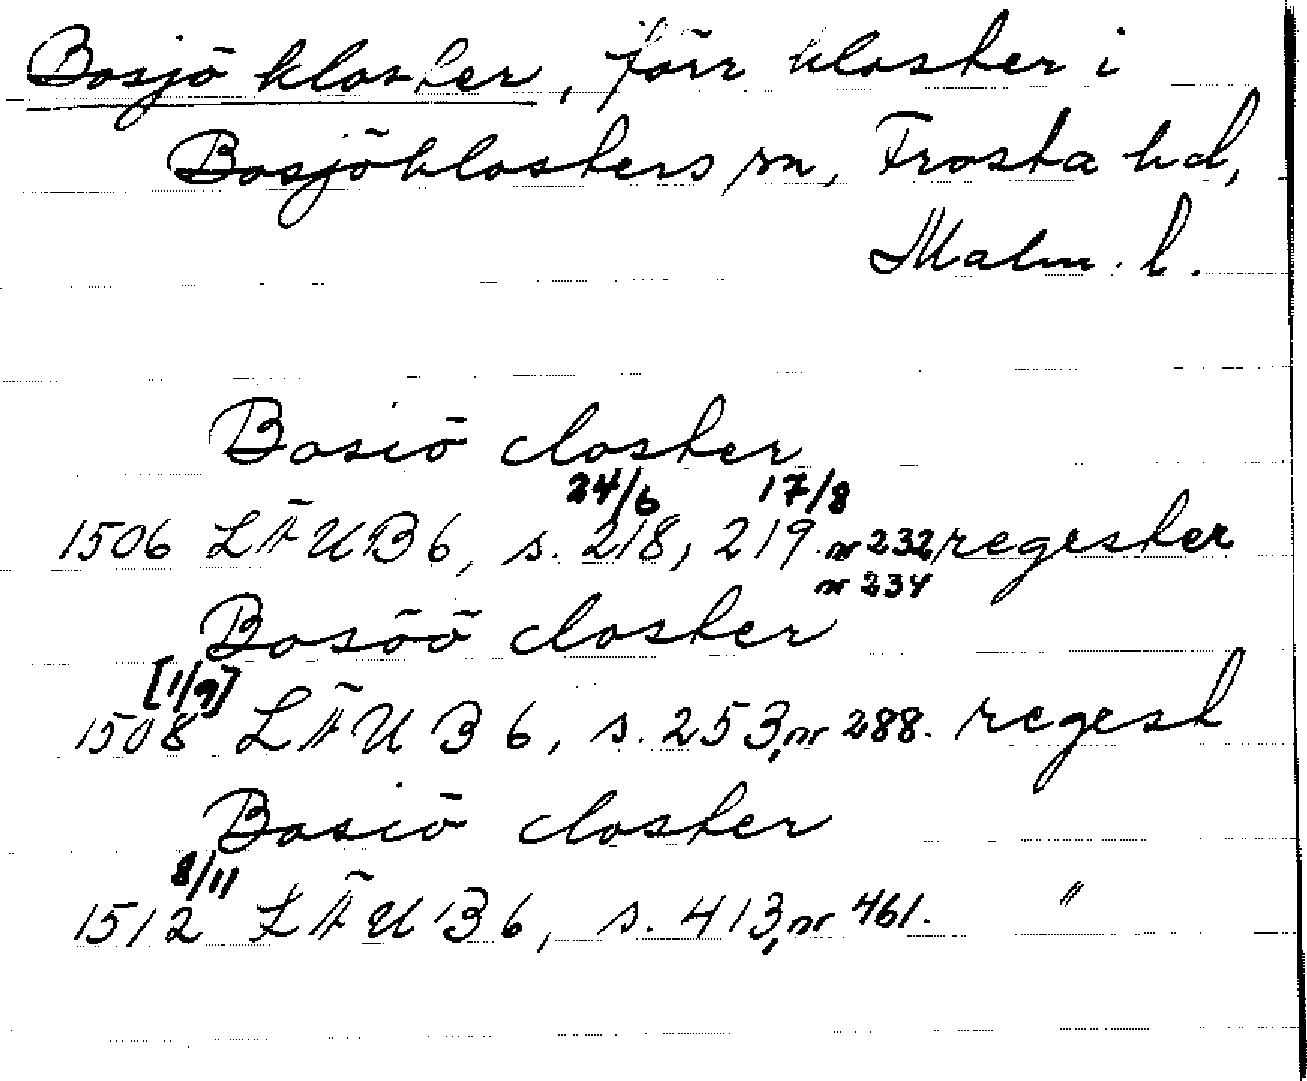 Bosjö kloster, förr kloster i
Bosjöklosters sn, Frosta hd,
Malm. l.
Bosiö closter
24/6 17/8
1506 LÄUB 6, s. 218, 219. nr 232, regester
nr 234
Bosöö closter
[1/9]
1508 LÄUB 6, s. 253, nr 288. regest
Bosiö closter
8/11
1512 LÄUB 6, s. 413, nr 461. "